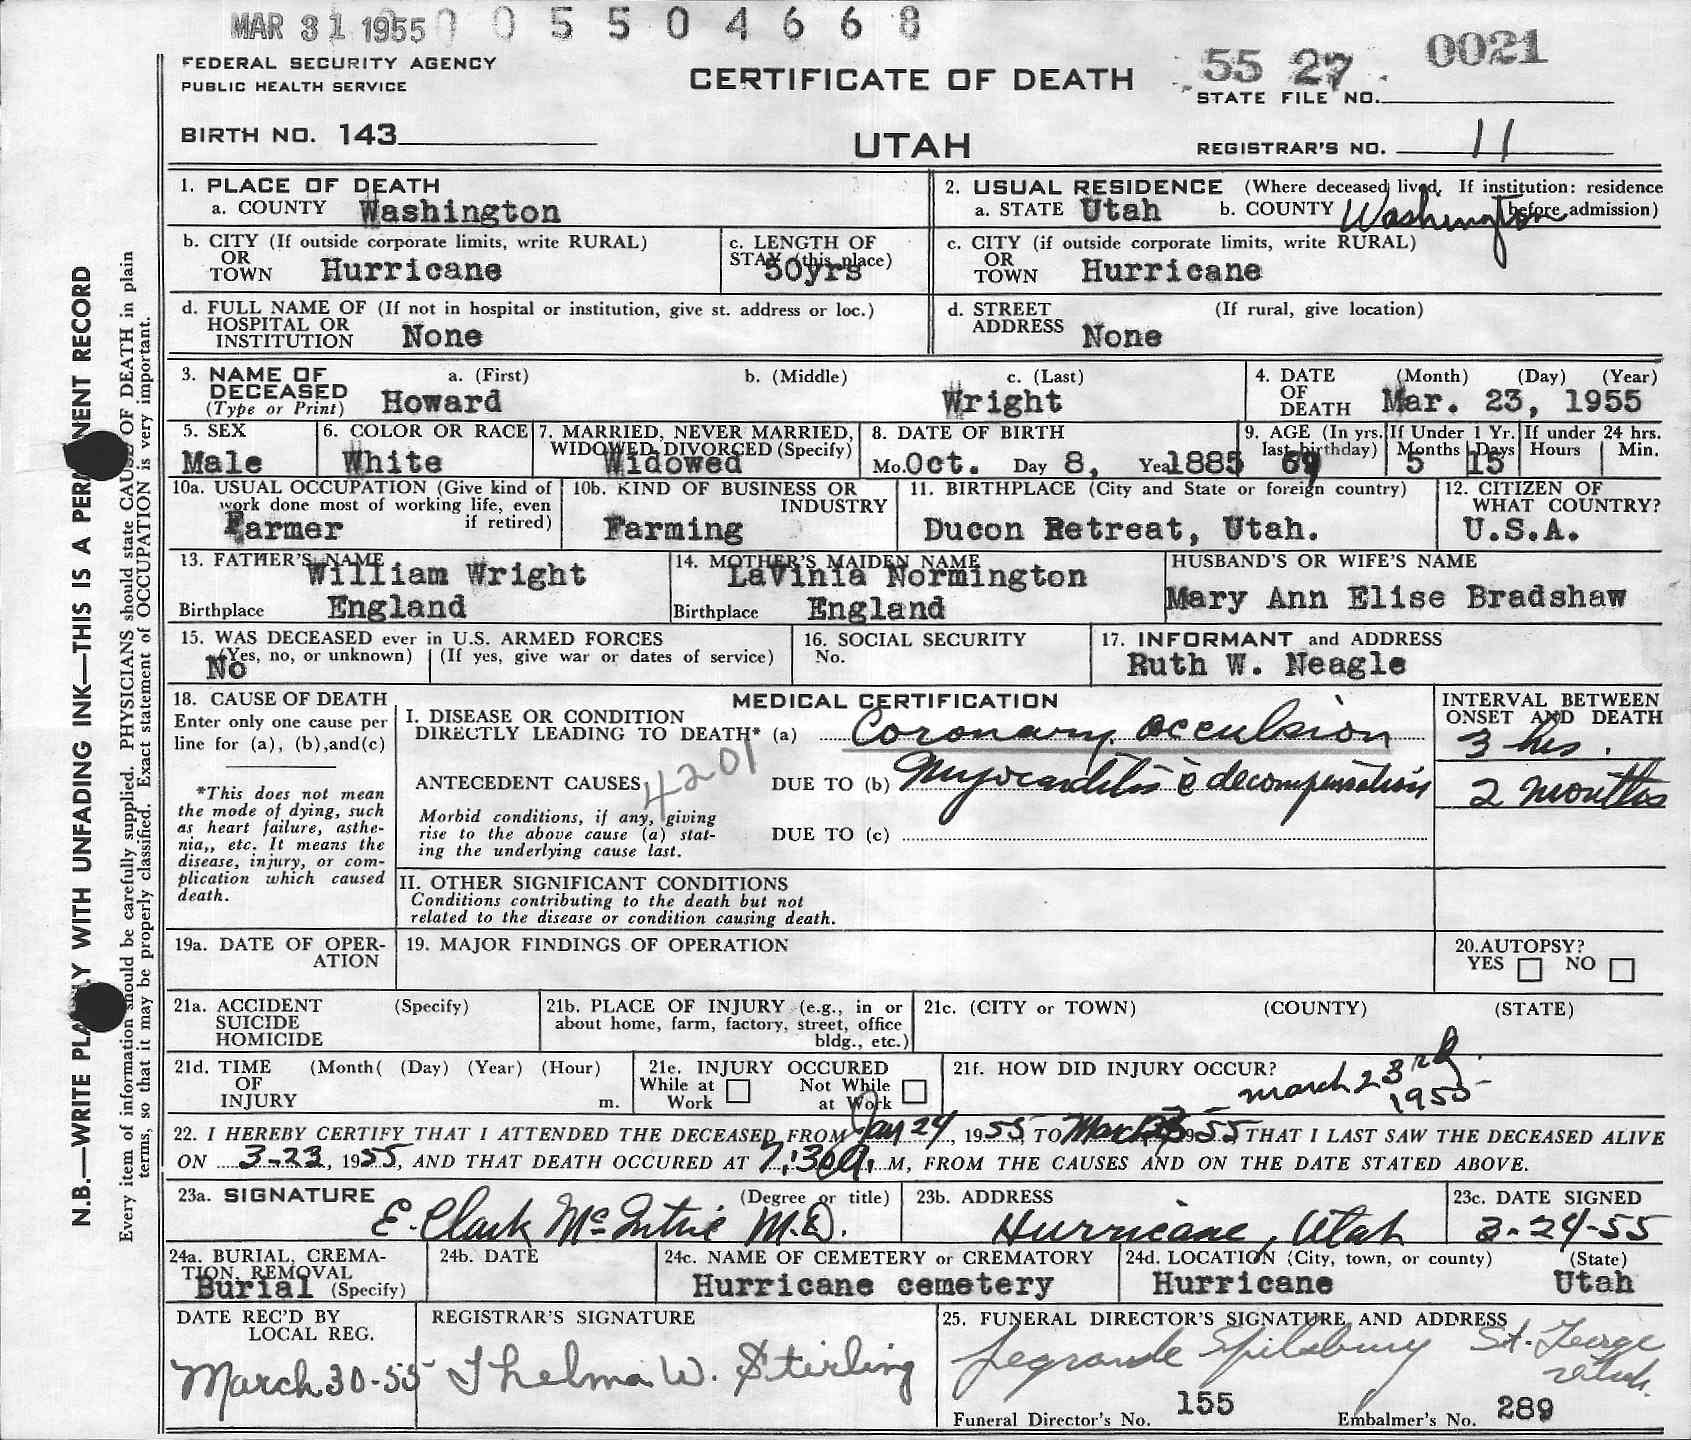 MAR 31 1955 0 0 5 5 0 4 6 6 8
FEDERAL SECURITY AGENCY
PUBLIC HEALTH SERVICE
CERTIFICATE OF DEATH
55 27 0021
STATE FILE NO.
BIRTH NO. 143
UTAH
REGISTRAR'S NO. 11
1. PLACE OF DEATH
a. COUNTY Washington
2. USUAL RESIDENCE (Where deceased lived. If institution: residence before admission)
a. STATE Utah b. COUNTY Washington
b. CITY (If outside corporate limits, write RURAL)
OR
TOWN Hurricane
c. LENGTH OF
STAY (this place)
50yrs
c. CITY (if outside corporate limits, write RURAL)
OR
TOWN Hurricane
d. FULL NAME OF (If not in hospital or institution, give st. address or loc.)
HOSPITAL OR
INSTITUTION None
d. STREET (If rural, give location)
ADDRESS None
3. NAME OF a. (First) b. (Middle) c. (Last)
DECEASED
(Type or Print) Howard Wright
4. DATE (Month) (Day) (Year)
OF
DEATH Mar. 23, 1955
5. SEX
Male
6. COLOR OR RACE
White
7. MARRIED, NEVER MARRIED,
WIDOWED, DIVORCED (Specify)
Widowed
8. DATE OF BIRTH
Mo. Oct. Day 8, Year 1885
9. AGE (In yrs. last birthday)
69
If Under 1 Yr.
Months Days
5 15
If under 24 hrs.
Hours Min.
10a. USUAL OCCUPATION (Give kind of
work done most of working life, even
if retired)
Farmer
10b. KIND OF BUSINESS OR
INDUSTRY
Farming
11. BIRTHPLACE (City and State or foreign country)
Ducon Retreat, Utah.
12. CITIZEN OF
WHAT COUNTRY?
U.S.A.
13. FATHER'S NAME
William Wright
Birthplace England
14. MOTHER'S MAIDEN NAME
LaVinia Normington
Birthplace England
HUSBAND'S OR WIFE'S NAME
Mary Ann Elise Bradshaw
15. WAS DECEASED ever in U.S. ARMED FORCES
(Yes, no, or unknown) (If yes, give war or dates of service)
No
16. SOCIAL SECURITY
No.
17. INFORMANT and ADDRESS
Ruth W. Neagle
18. CAUSE OF DEATH
Enter only one cause per
line for (a), (b), and (c)
*This does not mean
the mode of dying, such
as heart failure, asthe-
nia,, etc. It means the
disease, injury, or com-
plication which caused
death.
MEDICAL CERTIFICATION
I. DISEASE OR CONDITION
DIRECTLY LEADING TO DEATH* (a) Coronary occulsion
ANTECEDENT CAUSES 4201 DUE TO (b) Myocarditis c̄ decompensation
Morbid conditions, if any, giving
rise to the above cause (a) stat-
ing the underlying cause last.
DUE TO (c)
INTERVAL BETWEEN
ONSET AND DEATH
3 hrs.
2 months
II. OTHER SIGNIFICANT CONDITIONS
Conditions contributing to the death but not
related to the disease or condition causing death.
19a. DATE OF OPER-
ATION
19. MAJOR FINDINGS OF OPERATION
20. AUTOPSY?
YES NO
21a. ACCIDENT (Specify)
SUICIDE
HOMICIDE
21b. PLACE OF INJURY (e.g., in or
about home, farm, factory, street, office
bldg., etc.)
21c. (CITY or TOWN) (COUNTY) (STATE)
21d. TIME (Month( (Day) (Year) (Hour)
OF
INJURY m.
21e. INJURY OCCURED
While at Work Not While at Work
21f. HOW DID INJURY OCCUR?
march 23rd
1955
22. I HEREBY CERTIFY THAT I ATTENDED THE DECEASED FROM Jan 24, 1955, TO March 23 1955 THAT I LAST SAW THE DECEASED ALIVE
ON 3-23, 1955, AND THAT DEATH OCCURED AT 7:30 a. M, FROM THE CAUSES AND ON THE DATE STATED ABOVE.
23a. SIGNATURE (Degree or title)
E. Clark McIntire M.D.
23b. ADDRESS
Hurricane, Utah
23c. DATE SIGNED
3-24-55
24a. BURIAL, CREMA-
TION, REMOVAL
Burial (Specify)
24b. DATE
24c. NAME OF CEMETERY or CREMATORY
Hurricane cemetery
24d. LOCATION (City, town, or county) (State)
Hurricane Utah
DATE REC'D BY
LOCAL REG.
March 30-55
REGISTRAR'S SIGNATURE
Thelma W. Stirling
25. FUNERAL DIRECTOR'S SIGNATURE AND ADDRESS
Legrande Spilsbury St. George
Utah.
Funeral Director's No. 155 Embalmer's No. 289
N.B.—WRITE PLAINLY WITH UNFADING INK—THIS IS A PERMANENT RECORD
Every item of information should be carefully supplied. PHYSICIANS should state CAUSE OF DEATH in plain
terms, so that it may be properly classified. Exact statement of OCCUPATION is very important.